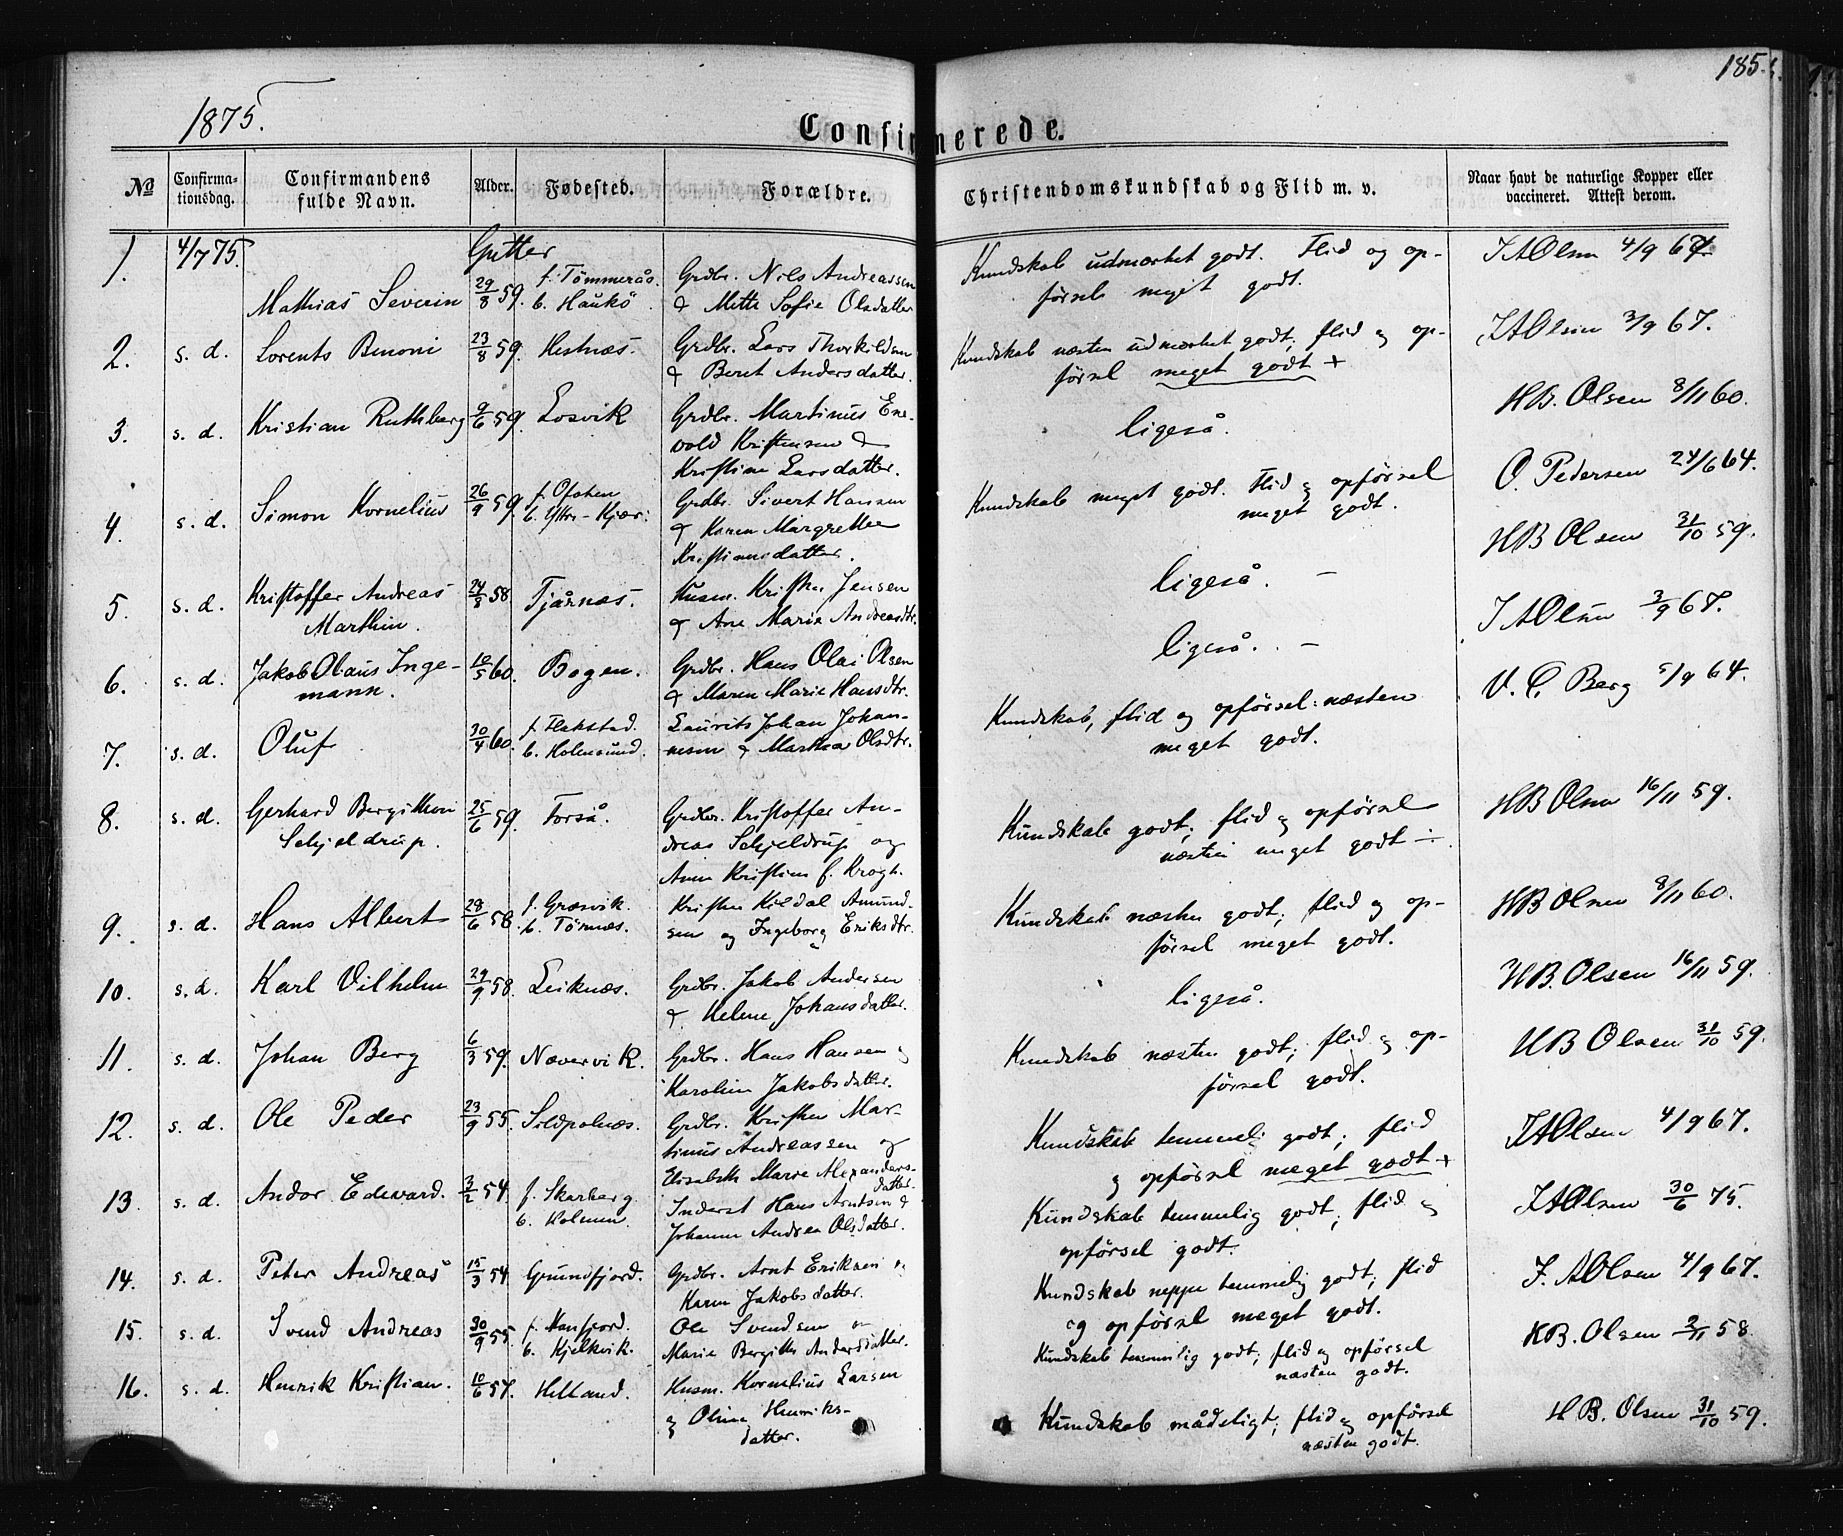 185.
1875.
Confirmerede.
No
Confirma-
tionsdag.
Confirmandens
fulde Navn.
Alder.
Fødested.
Forældre.
Christendomskundskab og Flid m. v.
Naar havt de naturlige Kopper eller
vaccineret. Attest derom.
Gutter
1. 4/7 75. Mathias Severin 29/8 59. f. Tömmerås. b. Haukö.
Grdbr. Nils Andreassen
& Mette Sofie Olsdatter
Kundskab udmærket godt. Flid og op-
førsel meget godt.
JAOlsen 4/9 67
2. s. d. Lorents Benoni 23/8 59. Hestnæs.
Grdbr. Lars Thorkildsen
& Beret Andersdatter.
Kundskab næsten udmærket godt; flid og op-
førsel meget godt +
JAOlsen 3/9 67.
3. s. d. Kristian Ruthberg 9/6 59. Losvik
Grdbr. Martinus Ene-
vold Kristensen &
Kristine Larsdatter.
ligeså.
HB. Olsen 8/11 60.
4. s. d. Simon Kornelius 26/9 59. f. Ofoten b. Yttre-Kjær:
Grdbr. Sivert Hansen
& Karen Margrethe
Kristiansdatter.
Kundskab meget godt. Flid og opførsel
meget godt.
O. Pedersen 24/6 64.
5. s. d. Kristoffer Andreas
Marthin.
24/8 58 Tjårnæs.
Husm. Kristen Jensen
& Ane Marie Andreasdtr.
ligeså. –
HB Olsen 31/10 59.
6. s. d. Jakob Olaus Inge-
mann.
10/5 60. Bogen.
Grdbr. Hans Olai Olsen
& Maren Marie Hansdtr.
ligeså. –
JAOlsen 3/9 67.
7. s. d. Oluf 30/4 60. f. Flakstad. b. Holmsund.
Laurits Johan Johan-
nesen & Marthea Olsdtr.
Kundskab, flid og opførsel: næsten
meget godt.
V. C. Berg 5/9 64.
8. s. d. Gerhard Bergithon
Schjeldrup.
25/6 59. Forså.
Grdbr. Kristoffer An-
dreas Schjeldrup og
Anne Kristine f. Krogh.
Kundskab godt; flid og opførsel
næsten meget godt ÷
HB Olsen 16/11 59.
9. s. d. Hans Albert 28/6 58. f. Græsvik. b. Törnæs.
Kristen Kildal Amund-
sen og Ingeborg Eriksdtr.
Kundskab næsten godt; flid og op-
førsel meget godt.
HB Olsen 8/11 60.
10. s. d. Karl Vilhelm 29/9 58. Leiknæs.
Grdbr. Jakob Andersen
& Helene Johansdatter.
ligeså.
HB. Olsen 16/11 59.
11. s. d. Johan Berg 6/3 59. Nævervik.
Grdbr. Hans Hansen og
Karoline Jakobsdatter.
Kundskab næsten godt; flid og op-
førsel godt.
HB Olsen 31/10 59.
12. s. d. Ole Peder 23/9 55. Sildpolnæs.
Grdbr. Kristen Mar-
tinus Andreassen og
Elisabeth Marie Alexanders-
datter.
Kundskab temmelig godt; flid
og opførsel meget godt +
JAOlsen 4/9 67.
13. s. d. Andor Edevard. 3/2 54. f. Skarberg b. Holmen.
Inderst Hans Arntsen &
Johanne Andrea Olsdatter.
Kundskab temmelig godt; flid og
opførsel godt.
JAOlsen 30/6 75.
14. s. d. Peter Andreas 15/3 54. Grundfjord.
Grdbr. Arnt Eriksen og
Karen Jakobsdatter.
Kundskab neppe temmelig godt; flid
og opførsel meget godt.
J. AOlsen 4/9 67.
15. s. d. Svend Andreas 30/9 55. f. Hanfjord. b. Kjelkvik.
Ole Svendsen og
Marie Bergitte Andersdatter.
Kundskab temmelig godt; flid og opførsel
næsten godt.
HB. Olsen 2/11 58
16. s. d. Henrik Kristian. 10/6 57. Helland.
Husm. Kornelius Larsen
og Oline Henriks-
datter.
Kundskab mådeligt; flid og opførsel
næsten godt.
H B. Olsen 31/10 59.